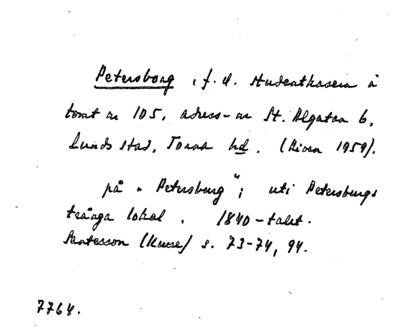 Petersborg, f. d. studentkasern å
tomt nr 105, adress-nr St. Algatan 6,
Lunds stad, Torna hd. (Riven 1959).
på "Petersburg"; uti Petersburgs
trånga lokal. 1840-talet.
(Kurre) s. 73-74, 94.
7764.